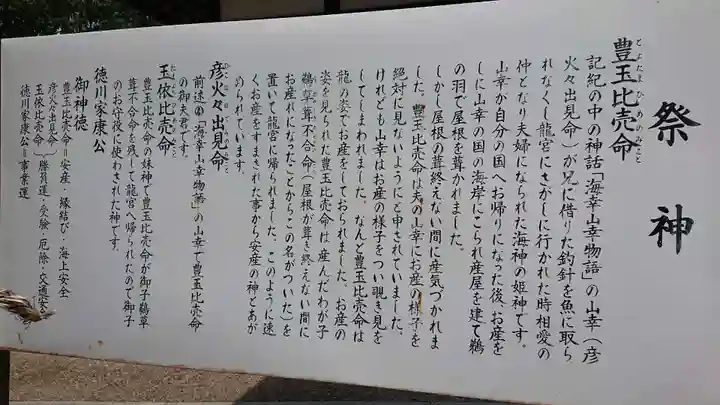 祭神
豊玉比売命
とよたまひめのみこと
記紀の中の神話「海幸山幸物語」の山幸（彦
火々出見命）が兄に借りた釣針を魚に取ら
れなくし龍宮にさがしに行かれた時相愛の
仲となり夫婦になられた海神の姫神です。
山幸が自分の国へお帰りになった後、お産を
しに山幸の国の海岸にこられ産屋を建て鵜
の羽で屋根を葺かれました。
しかし屋根の葺終えない間に産気づかれま
した。豊玉比売命は夫の山幸にお産の様子を
絶対に見ないようにと申されていました。
けれども山幸はお産の様子をつい覗き見を
してしまわれました。なんと豊玉比売命は
龍の姿でお産をしておられました。お産の
姿を見られた豊玉比売命は産んだわが子
鵜草葺不合命（屋根が葺き終えない間に
お産れになったことからこの名がついた）を
置いて龍宮に帰られました。このように速
くお産をすまされた事から安産の神とあが
められています。
彦火々出見命
前述の「海幸山幸物語」の山幸で豊玉比売命
の御夫君です。
玉依比売命
豊玉比売命の妹神で豊玉比売命が御子鵜草
葺不合命を残して龍宮へ帰られたので御子
のお守役に使わされた神です。
徳川家康公
御神徳
豊玉比売命＝安産・縁結び・海上安全
彦火々出見命）
玉依比売命）勝負運・受験・厄除・交通安全
徳川家康公＝事業運